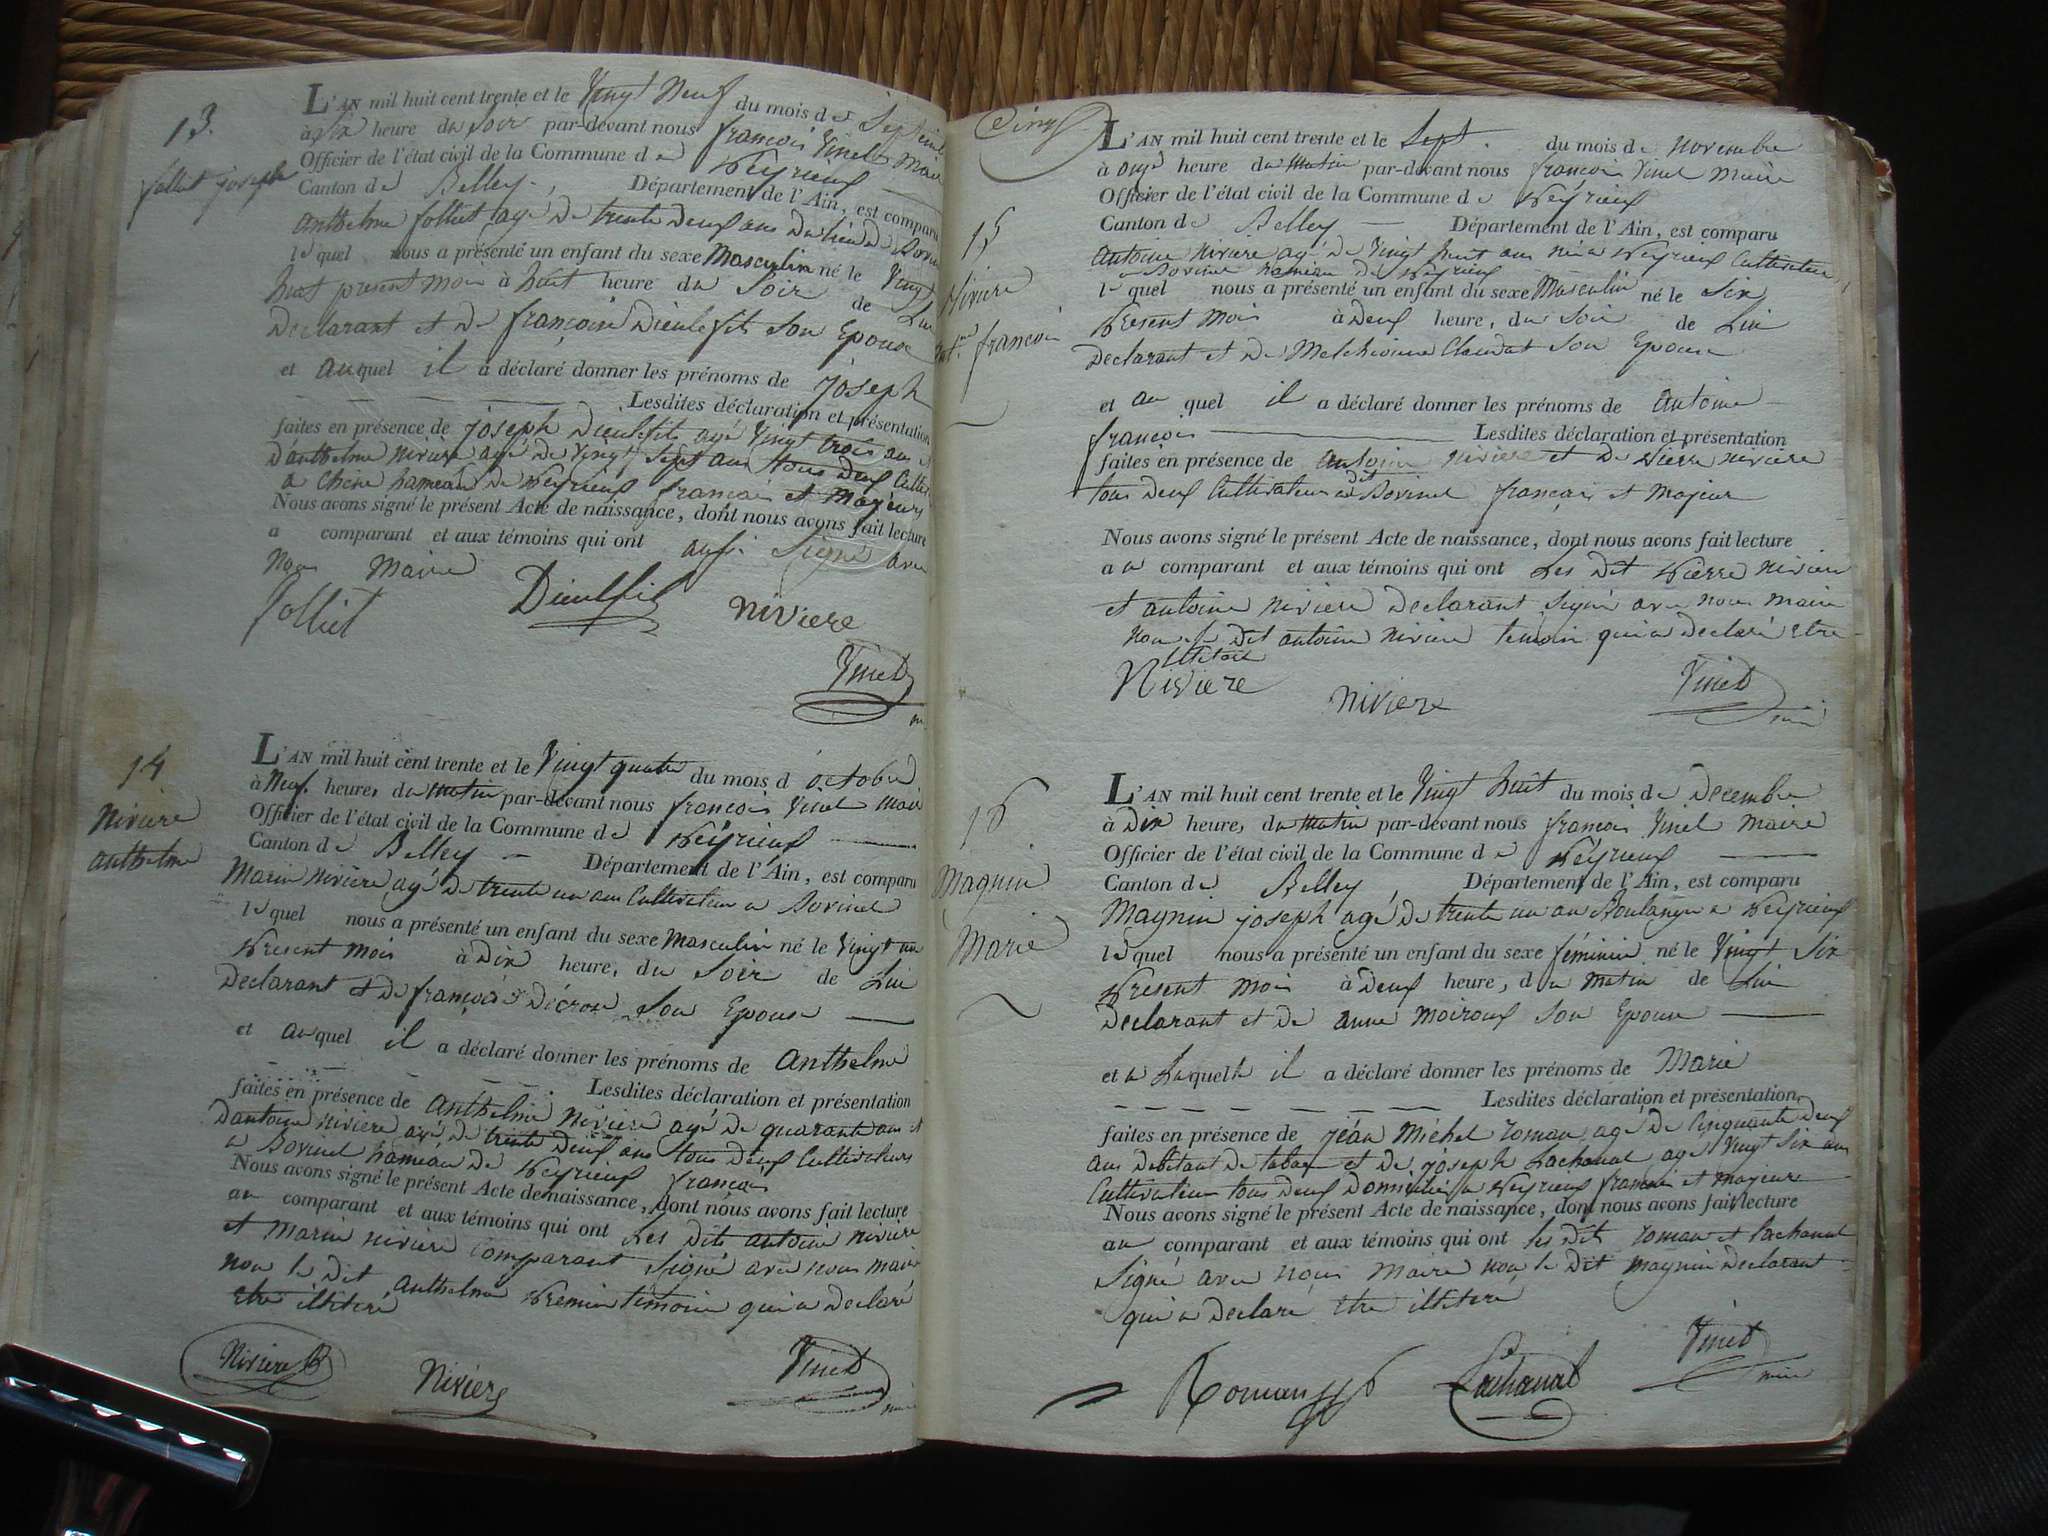 13.
folliet joseph
L'AN mil huit cent trente et le Vingt Neuf du mois de Septembre
à Six heure du Soir par-devant nous françois Vinet Maire
Officier de l'état civil de la Commune de Peyrieux
Canton de Belley, Département de l'Ain, est comparu
anthelme folliet agé de trente deux ans
lequel nous a présenté un enfant du sexe Masculin né le Vingt
huit present mois à huit heure du Soir de Lui
Declarant et de françoise Dieulefits Son Epouse
et auquel il a déclaré donner les prénoms de joseph
Lesdites déclaration et présentation
faites en présence de joseph Dieulefits agé Vingt trois ans et
D'anthelme niviere agé de Vingt Sept ans tous deux
a hameau de Peyrieux français et Majeurs
Nous avons signé le présent Acte de naissance, dont nous avons fait lecture
a comparant et aux témoins qui ont aussi Signé avec
Nous Maire
folliet Dieulefit niviere
Vinet
14
Niviere
anthelme
L'AN mil huit cent trente et le Vingt quatre du mois d octobre
à Neuf heure, du Matin par-devant nous françois Vinet maire
Officier de l'état civil de la Commune de Peyrieux
Canton de Belley Département de l'Ain, est comparu
Marin niviere agé de trente un ans Cultivateur a Sovinel
lequel nous a présenté un enfant du sexe Masculin né le Vingt un
Present mois à Dix heure, du Soir de Lui
Declarant et de françoise Décroux Son Epouse
et auquel il a déclaré donner les prénoms de anthelme
Lesdites déclaration et présentation
faites en présence de anthelme niviere agé de quarante ans et
Dantoine niviere agé de trente deux ans tous deux Cultivateurs
a Sovinel hameau de Peyrieux français
Nous avons signé le présent Acte de naissance, dont nous avons fait lecture
au comparant et aux témoins qui ont Les dits antoine niviere
et marin niviere comparant signé avec nous maire
non le dit anthelme Premier témoin qui a declaré
etre illitéré
Niviere Niviere Vinet
maire
Cinq
15
Niviere
ant.ne françois
L'AN mil huit cent trente et le Sept du mois de novembre
à onze heure du matin par-devant nous françois Vinet Maire
Officier de l'état civil de la Commune de Peyrieux
Canton de Belley Département de l'Ain, est comparu
antoine niviere agé de Vingt huit ans né a Peyrieux Cultivateur
a Sovinel hameau de Peyrieux
lequel nous a présenté un enfant du sexe Masculin né le Six
Present mois à Deux heure, du Soir de Lui
Declarant et de Melchionne Claudat Son Epouse
et au quel il a déclaré donner les prénoms de antoine
françois Lesdites déclaration et présentation
faites en présence de antoine niviere et de Pierre niviere
tous deux Cultivateurs a dit Sovinel français et Majeur
Nous avons signé le présent Acte de naissance, dont nous avons fait lecture
au comparant et aux témoins qui ont Les dit Pierre niviere
et antoine niviere Declarant signé avec nous maire
non le dit antoine niviere temoin qui a Declaré etre
illitéré
Niviere niviere Vinet
maire
16
Magnin
Marie
L'AN mil huit cent trente et le Vingt huit du mois de Decembre
à Dix heure, du Matin par-devant nous françois Vinet Maire
Officier de l'état civil de la Commune de Peyrieux
Canton de Belley, Département de l'Ain, est comparu
Magnin joseph agé de trente un an Boulanger a Peyrieux
lequel nous a présenté un enfant du sexe féminin né le Vingt Six
Present mois à Deux heure, du Matin de Lui
Declarant et de anne Moiroux Son Epouse
et a Laquelle il a déclaré donner les prénoms de Marie
Lesdites déclaration et présentation
faites en présence de jean Michel roman agé de Cinquante deux
ans debitant de tabac et de joseph Lachanal agé Vingt Six ans
Cultivateur tous deux Domicilié a Peyrieux français et majeur
Nous avons signé le présent Acte de naissance, dont nous avons fait lecture
au comparant et aux témoins qui ont les dits roman et Lachanal
Signé avec nous Maire non le Dit Magnin Declarant
qui a Declaré etre illitéré
Roman Lachanal Vinet
maire